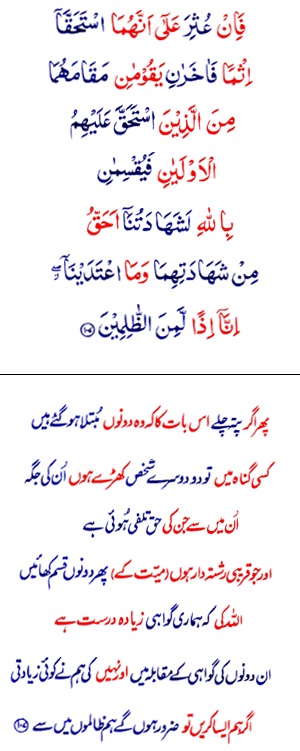 فَاِنْ عُثِرَ عَلٰٓى اَنَّهُمَا اسْتَحَقَّاۤ
اِثْمًا فَاٰخَرٰنِ يَقُوْمٰنِ مَقَامَهُمَا
مِنَ الَّذِيْنَ اسْتَحَقَّ عَلَيْهِمُ
الْاَوْلَيٰنِ فَيُقْسِمٰنِ
بِاللّٰهِ لَشَهَادَتُنَاۤ اَحَقُّ
مِنْ شَهَادَتِهِمَا وَمَا اعْتَدَيْنَاۤ ۖ
اِنَّاۤ اِذًا لَّمِنَ الظّٰلِمِيْنَ ۝۱۰۷
پھر اگر پتہ چلے اس بات کا کہ وہ دونوں مُبتلا ہو گئے ہیں
کسی گناہ میں تو دو دوسرے شخص کھڑے ہوں اُن کی جگہ
اُن میں سے جن کی حق تلفی ہُوئی ہے
اور جو قریبی رشتہ دار ہوں (میّت کے) پھر دونوں قسم کھائیں
اللہ کی کہ ہماری گواہی زیادہ درست ہے
ان دونوں کی گواہی کے مقابلہ میں اور نہیں کی ہم نے کوئی زیادتی
اگر ہم ایسا کریں تو ضرور ہوں گے ہم ظالموں میں سے ۝۱۰۷